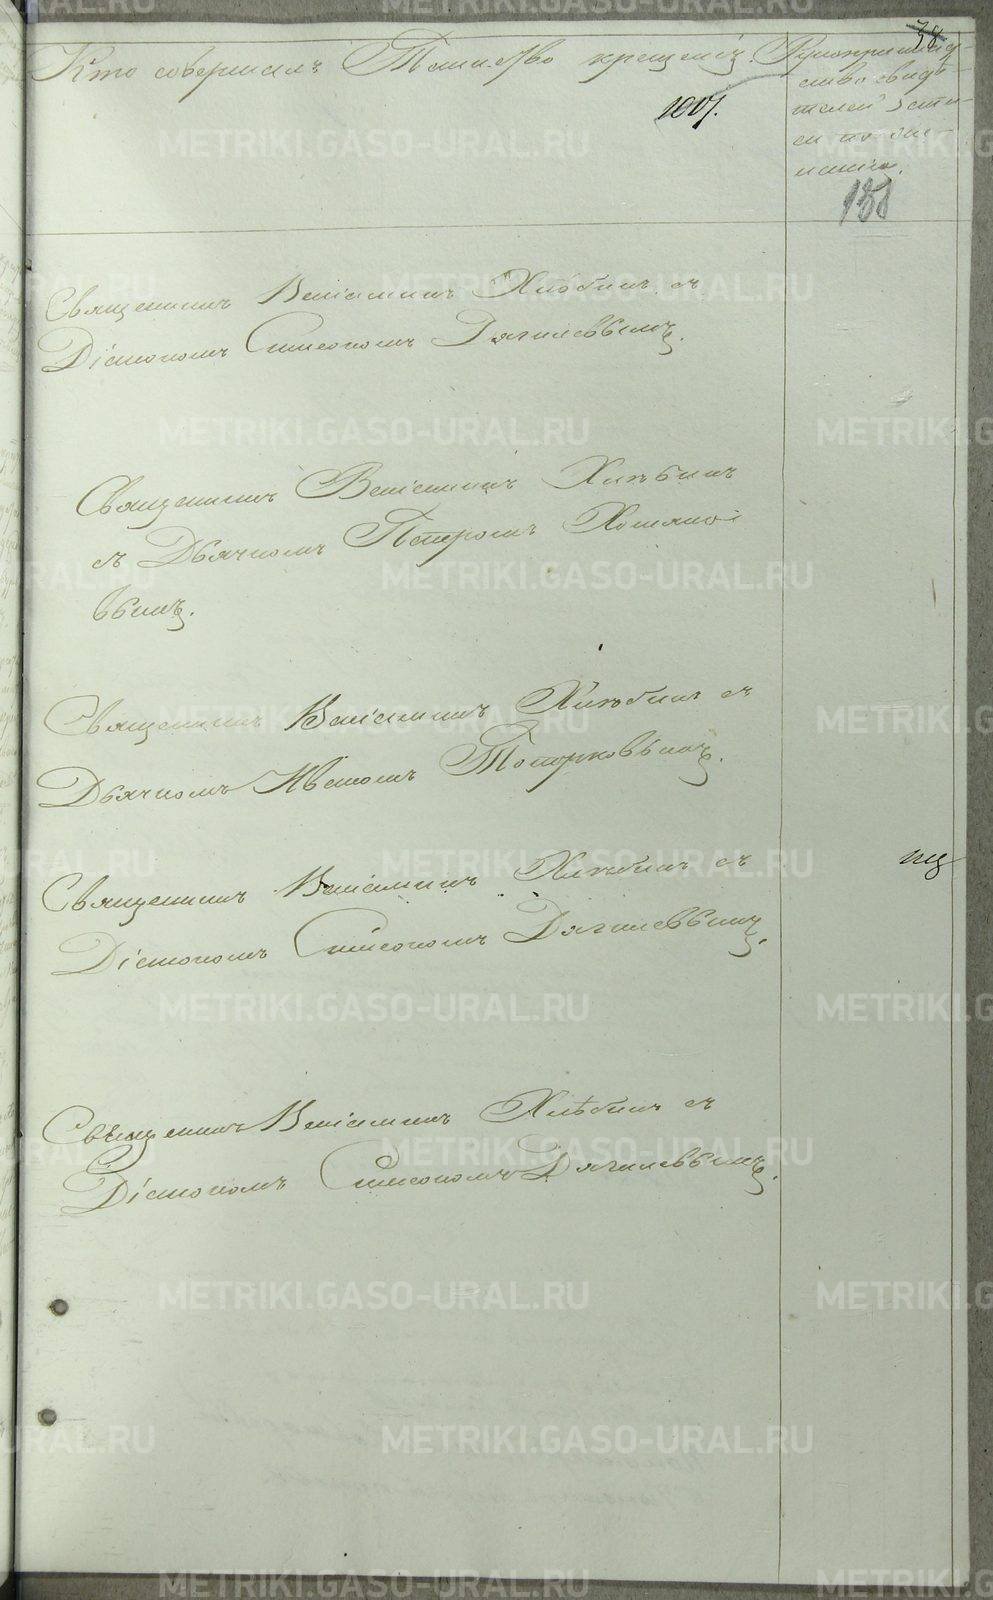 Кто совершалъ Таинство крещенія.
Рукоприклад-
ство свидѣ-
телей записи
по же-
ланію.
188
Священникъ Веніаминъ Хлѣбинъ съ
Діакономъ Симеономъ Дягилевымъ.
Священникъ Веніаминъ Хлѣбинъ
съ Дьячкомъ Петромъ Хомяко-
вымъ.
Священникъ Веніаминъ Хлѣбинъ съ
Дьячкомъ Иваномъ Топорковымъ.
Священникъ Веніаминъ Хлѣбинъ съ
Діакономъ Симеономъ Дягилевымъ.
Священникъ Веніаминъ Хлѣбинъ съ
Діакономъ Симеономъ Дягилевымъ.
METRIKI.GASO-URAL.RU